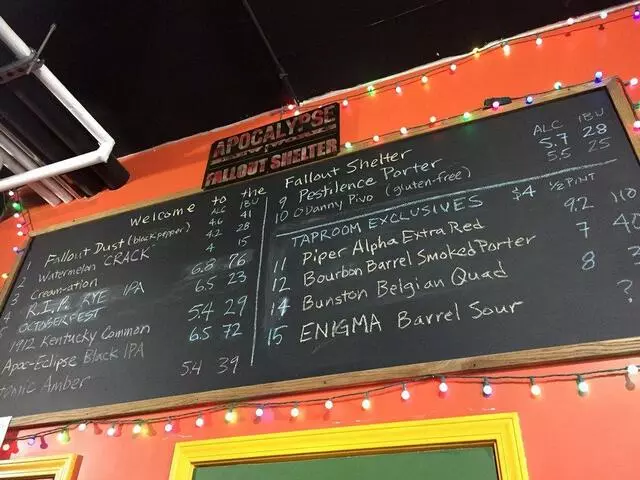 APOCALYPSE
BREWWORKS
FALLOUT SHELTER
Welcome to the Fallout Shelter
ALC IBU
Fallout Dust (black pepper) 4.6 41
2 Watermelon "CRACK" 4.2 28
3 Cream-ation 4 15
R.I.P. RYE IPA 6.8 76
5 OCTOBERFEST 6.5 23
1912 Kentucky Common 5.4 29
Apoc-Eclipse Black IPA 6.5 72
Amber 5.4 39
ALC IBU
9 Pestilence Porter 5.7 28
10 O'Danny Pivo (gluten-free) 5.5 25
TAPROOM EXCLUSIVES $4 1/2 PINT
11 Piper Alpha Extra Red 9.2
12 Bourbon Barrel Smoked Porter 7
14 Bunston Belgian Quad 8
15 ENIGMA Barrel Sour ?